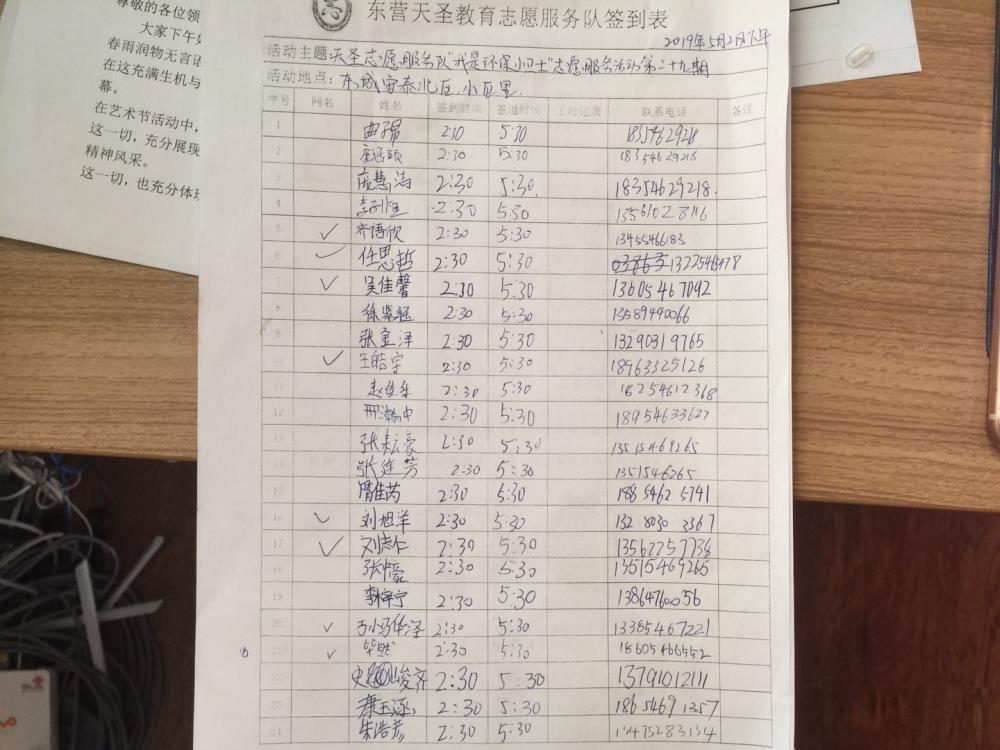 尊敬的各位领
大家下午好
春雨润物无言语
在这充满生机与
幕。
在艺术节活动中，
这一切，充分展现
精神风采。
这一切，也充分体现
东营天圣教育志愿服务队签到表
2019年5月2日下午
活动主题 天圣志愿服务队"我是环保小卫士"志愿服务活动第二十九期
活动地点： 东城宙泰北区小区里
序号 网名 姓名 签到时间 签退时间 工时记录 联系电话 备注
1 曲子易 2:30 5:30 1835462928
2 2:30 5:30 18354629216
3 庞慧洁 2:30 5:30 18354629218
4 2:30 5:30 13561028116
5 ✓ 齐语欣 2:30 5:30 13455466183
6 ✓ 任思哲 2:30 5:30
7 ✓ 吴佳馨 2:30 5:30 13605467092
8 2:30 5:30 13589490066
9 张金泽 2:30 5:30 13290319765
10 ✓ 王皓宇 2:30 5:30 18963325126
11 赵佳乐 2:30 5:30 18254612368
12 邢瀚中 2:30 5:30 18954633627
13 张耘豪 2:30 5:30 13515469265
14 张连芳 2:30 5:30 1351546265
15 隋佳芮 2:30 5:30 188 5462 5741
16 ✓ 刘旭洋 2:30 5:30 132 8030 3367
17 ✓ 刘志仁 2:30 5:30 13562257738
18 2:30 5:30 13515469265
19 李梓宁 2:30 5:30 13864760056
20 ✓ 2:30 5:30 13385467221
21 ✓ 毕然 2:30 5:30 18605466552
22 峻齐 2:30 5:30 13791012111
23 康玉涵 2:30 5:30 186 5469 1357
24 朱浩然 2:30 5:30 13475283134